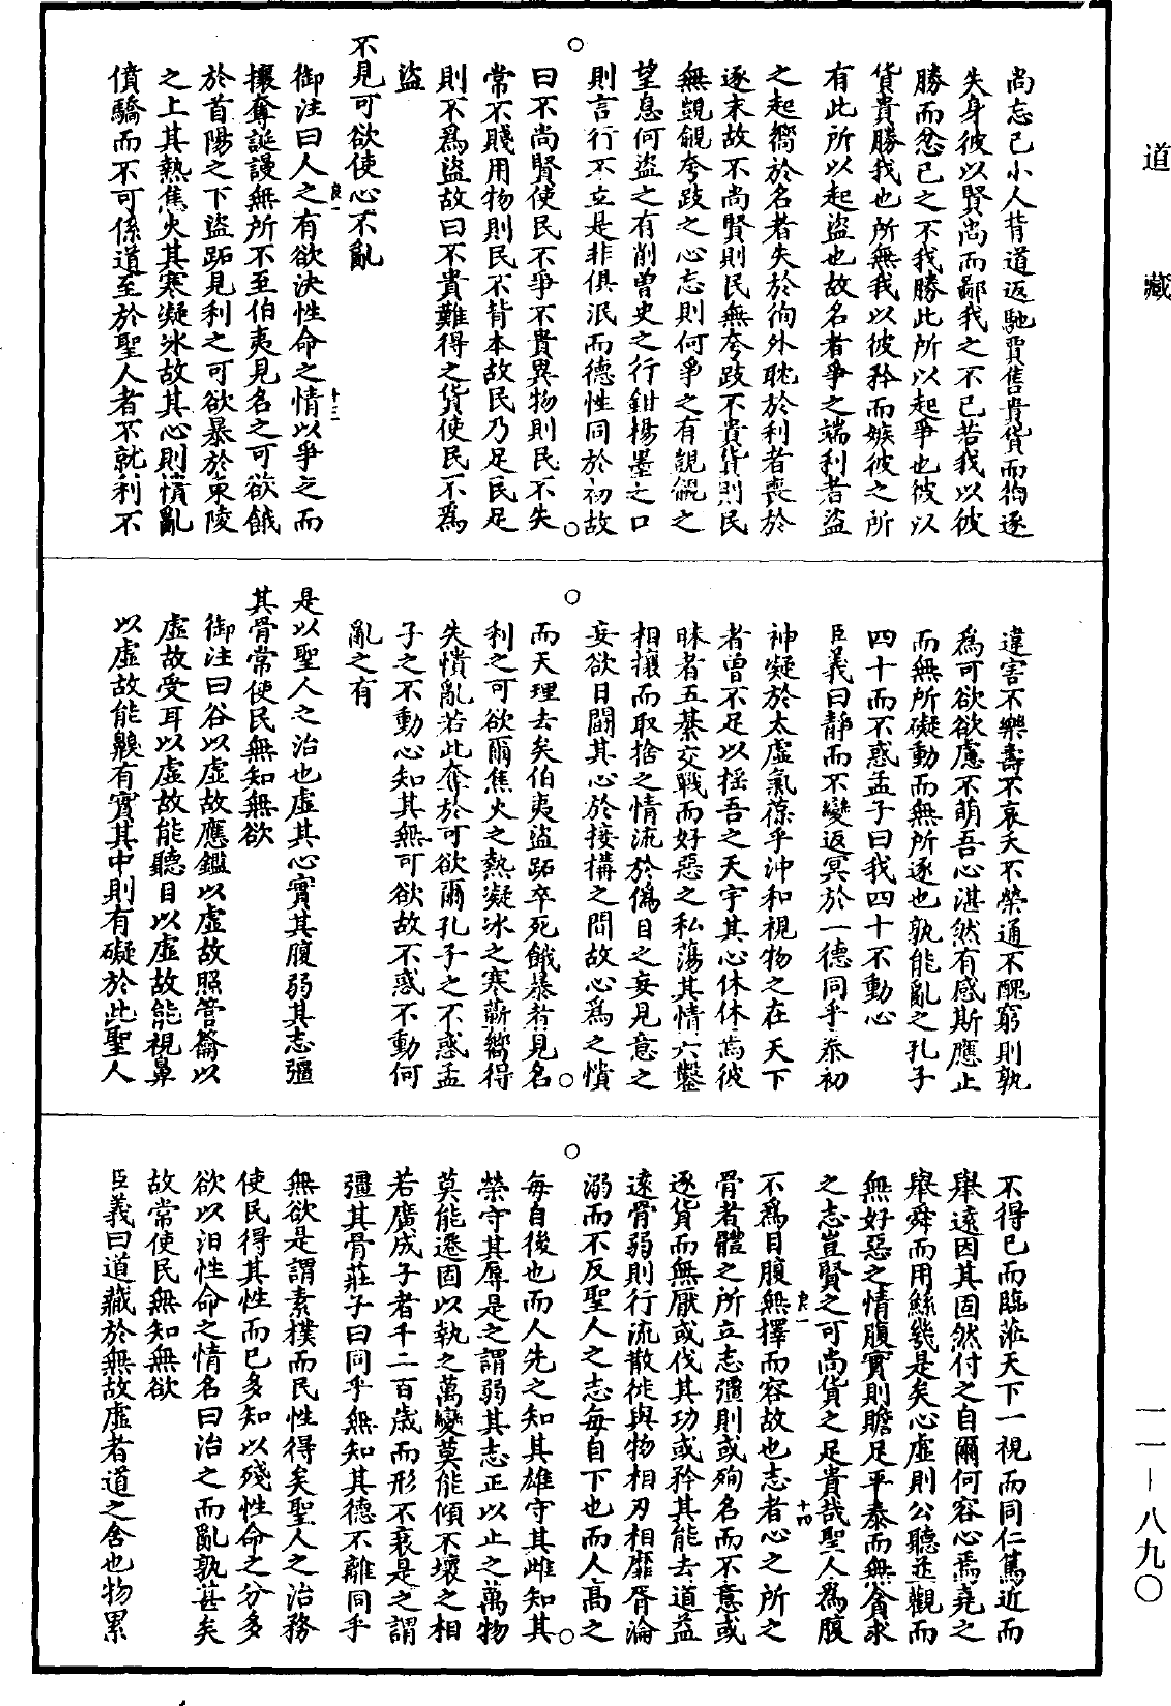 道藏
尚忘己小人背道返馳賈售貴貨而徇逐
失身彼以賢尚而鄙我之不已若我以彼
勝而忿己之不我勝此所以起爭也彼以
貨貴勝我也所無我以彼矜而嫉彼之所
有此所以起盜也故名者爭之端利者盜
之起嚮於名者失於徇外耽於利者喪於
逐末故不尚賢則民無夸跂不貴貨則民
無覬覦夸跂之心忘則何爭之有覬覦之
望息何盜之有削曾史之行鉗楊墨之口
則言行不立是非俱泯而德性同於初故
曰不尚賢使民不爭不貴異物則民不失
常不賤用物則民不背本故民乃足民足
則不為盜故曰不貴難得之貨使民不為
盜
不見可欲使心不亂
御注曰人之有欲決性命之情以爭之而
攘奪誕謾無所不至伯夷見名之可欲餓
於首陽之下盜跖見利之可欲暴於東陵
之上其熱焦火其寒凝冰故其心則憒亂
僨驕而不可係道至於聖人者不就利不
違害不樂壽不哀夭不榮通不醜窮則孰
為可欲欲慮不萌吾心湛然有感斯應止
而無所礙動而無所逐也孰能亂之孔子
四十而不惑孟子曰我四十不動心
臣義曰靜而不變返冥於一德同乎泰初
神凝於太虛氣葆乎沖和視物之在天下
者曾不足以搖吾之天宇其心休休焉彼
昧者五綦交戰而好惡之私蕩其情六鑿
相攘而取捨之情流於偽目之妄見意之
妄欲日鬬其心於接構之間故心為之憒
而天理去矣伯夷盜跖卒死餓暴者見名
利之可欲爾焦火之熱凝冰之寒蘄嚮得
失憒亂若此奪於可欲爾孔子之不惑孟
子之不動心知其無可欲故不惑不動何
亂之有
是以聖人之治也虛其心實其腹弱其志彊
其骨常使民無知無欲
御注曰谷以虛故應鑑以虛故照管籥以
虛故受耳以虛故能聽目以虛故能視鼻
以虛故能齅有實其中則有礙於此聖人
不得已而臨蒞天下一視而同仁篤近而
舉遠因其固然付之自爾何容心焉堯之
舉舜而用鯀幾是矣心虛則公聽並觀而
無好惡之情腹實則贍足平泰而無貪求
之志豈賢之可尚貨之足貴哉聖人為腹
不為目腹無擇而容故也志者心之所之
骨者體之所立志彊則或殉名而不意或
逐貨而無厭或伐其功或矜其能去道益
遠骨弱則行流散徙與物相刃相靡胥淪
溺而不反聖人之志每自下也而人高之
每自後也而人先之知其雄守其雌知其
榮守其辱是之謂弱其志正以止之萬物
莫能遷固以執之萬變莫能傾不壞之相
若廣成子者千二百歲而形不衰是之謂
彊其骨莊子曰同乎無知其德不離同乎
無欲是謂素樸而民性得矣聖人之治務
使民得其性而已多知以殘性命之分多
欲以汩性命之情名曰治之而亂孰甚矣
故常使民無知無欲
臣義曰道藏於無故虛者道之舍也物累
一一－八九〇